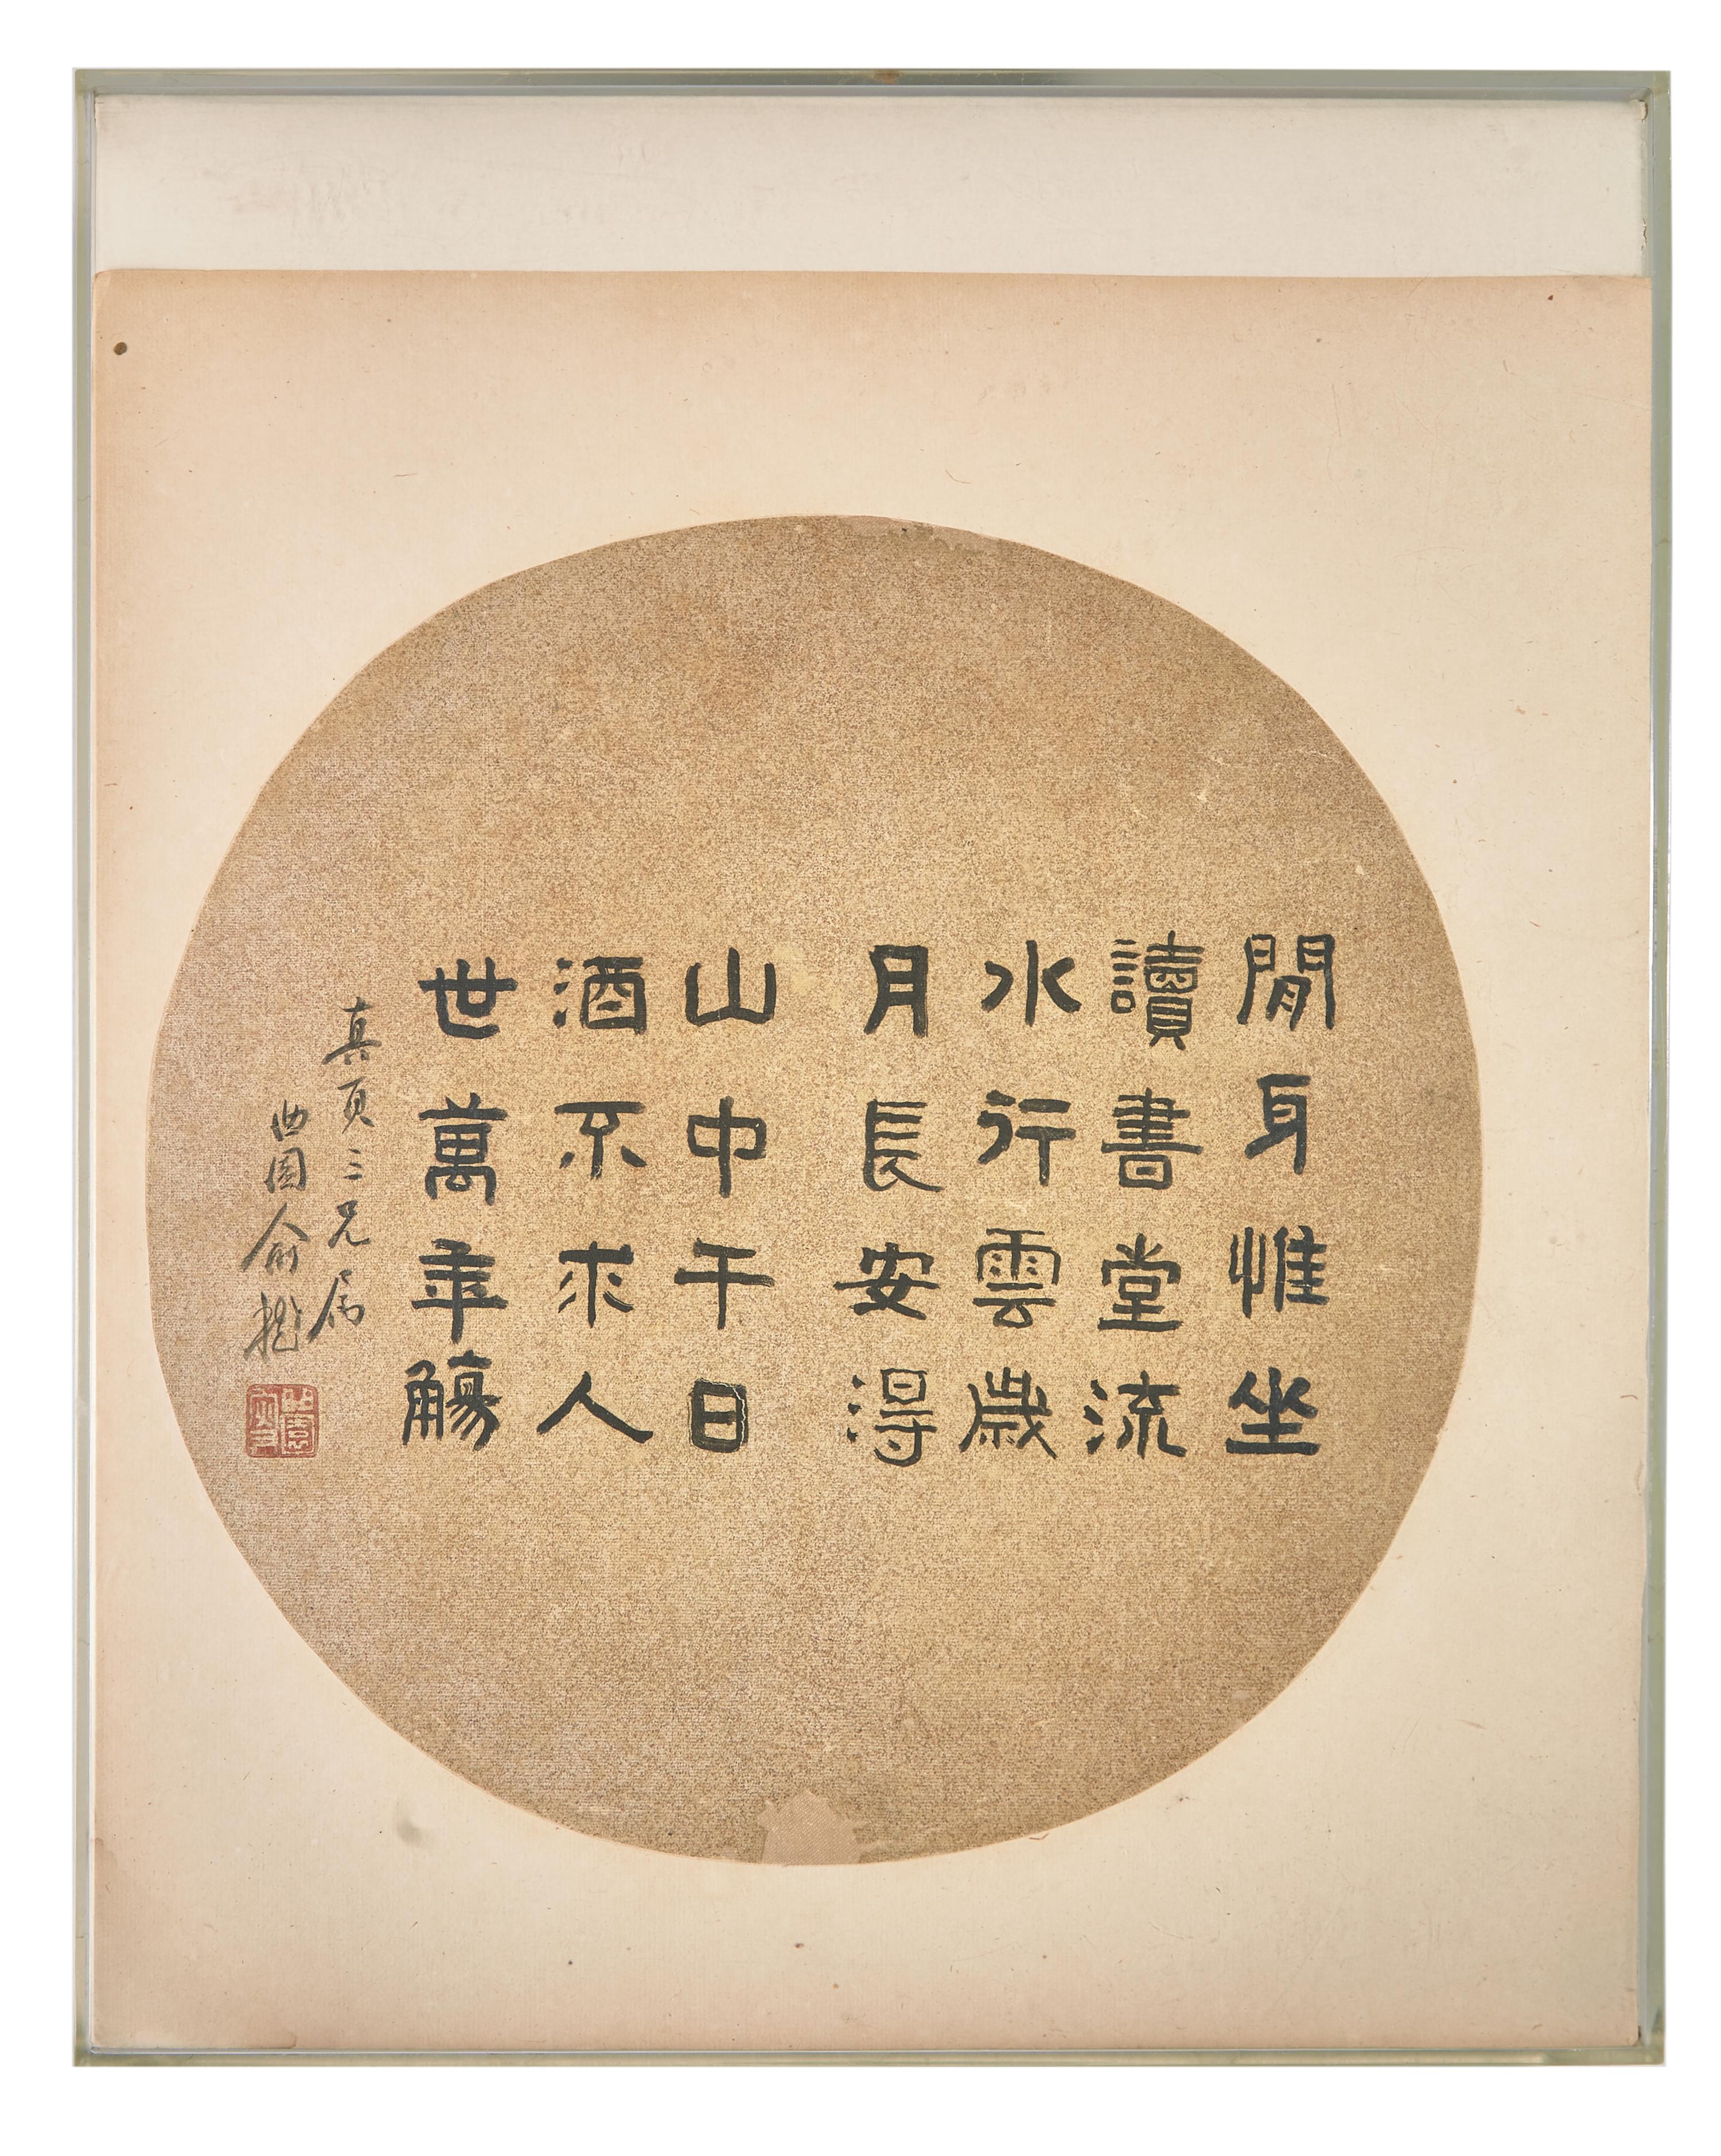 閒身惟坐
讀書堂流
水行雲歲
月長安得
山中千日
酒不求人
世萬年觴
真頁三兄属
曲園俞樾